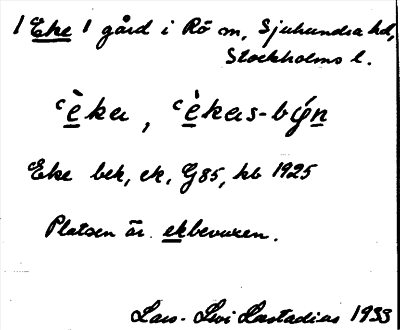 1 Eke 1 gård i Rö sn, Sjuhundra hd,
Stockholms l.
‘èka, ‘èkas-býn
Eke bek, ek, G85, kb 1925
Platsen är ekbevuxen.
Lars-Levi Læstadius 1933